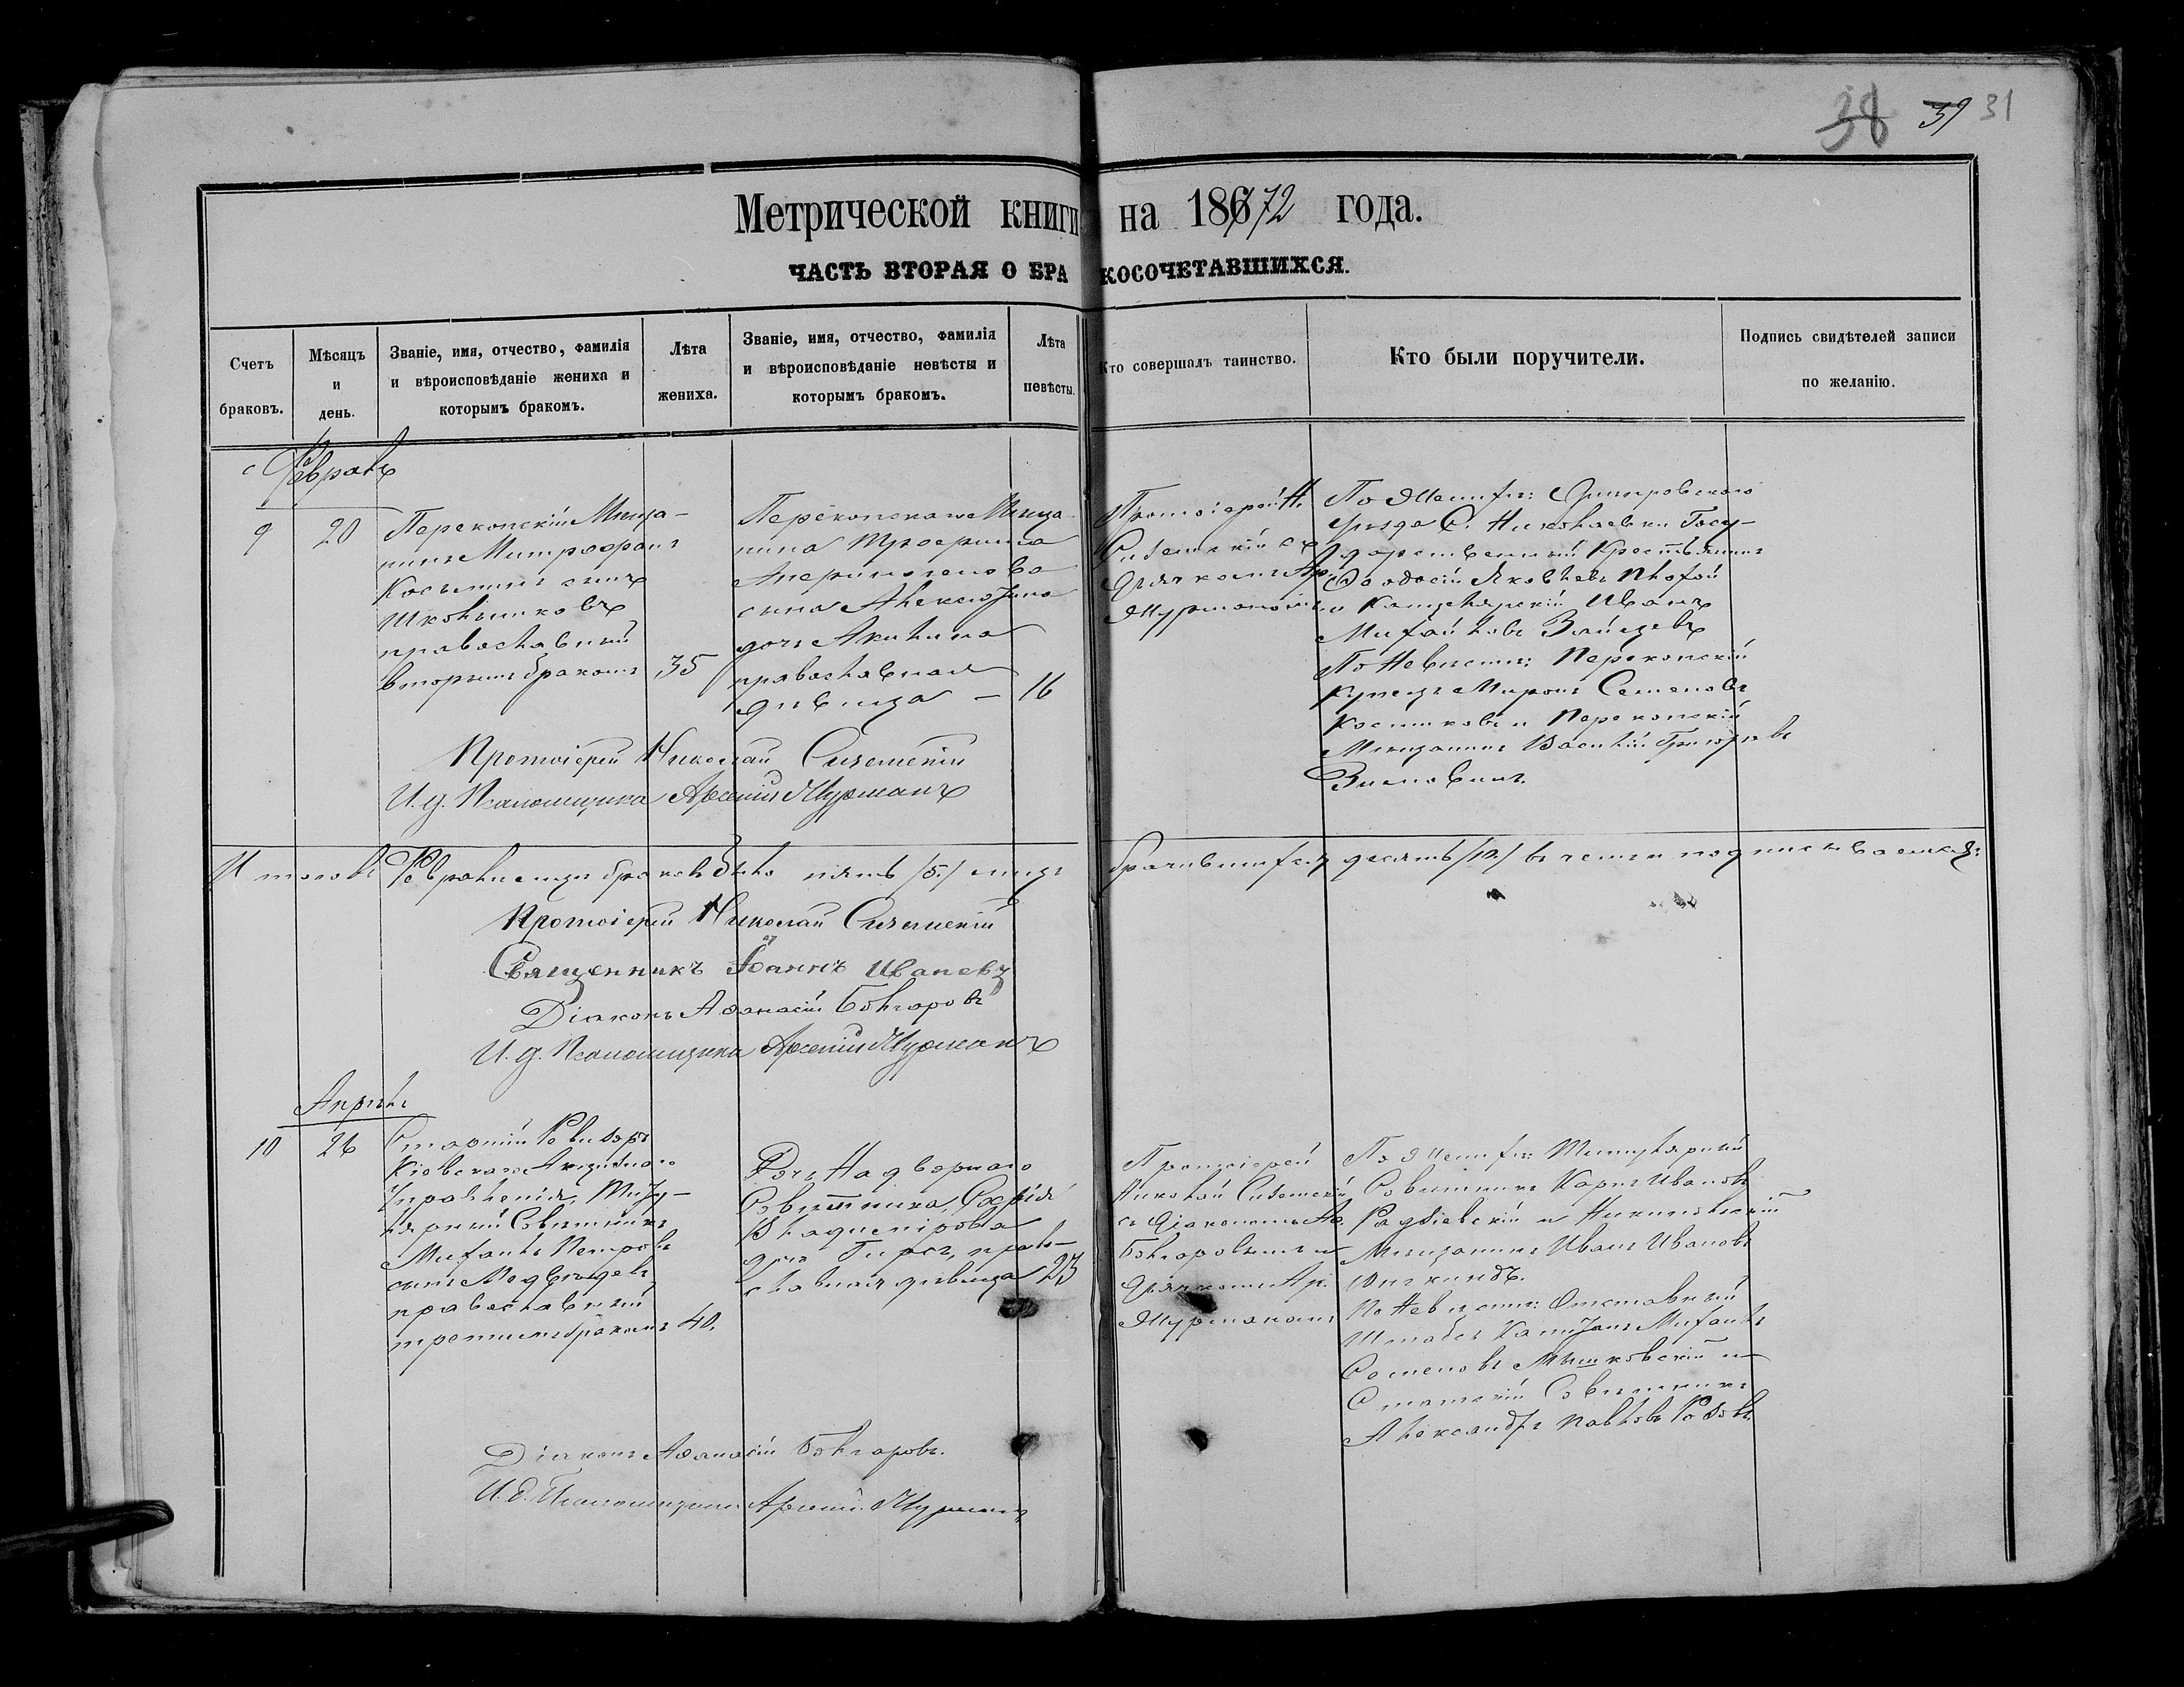 38 39 31
Метрической книги на 18672 года.
ЧАСТЬ ВТОРАЯ О БРАКОСОЧЕТАВШИХСЯ.
Счетъ
браковъ.
Мѣсяцъ
и
день.
Званіе, имя, отчество, фамилія
и вѣроисповѣданіе жениха и
которымъ бракомъ.
Лѣта
жениха.
Званіе, имя, отчество, фамилія
и вѣроисповѣданіе невѣсты и
которымъ бракомъ.
Лѣта
невѣсты.
Кто совершалъ таинство.
Кто были поручители.
Подпись свидѣтелей записи
по желанію.
Февраль
9
20
Перекопскій Мѣща-
нинъ Митрофанъ
Косьминъ сынъ
Школьниковъ
православный
вторымъ бракомъ
35
Перекопскаго Мѣща-
нина
сына Александра
дочь Акилина
православная
дѣвица -
16
Протоіерей Н.
съ
Дьячкомъ Ар.
Журманомъ
По Женихѣ: Днѣпровскаго
уѣзда С. Николаевки Госу-
дарственный Крестьянинъ
Феодосій Яковлевъ Плохой
и Канцелярскій Иванъ
Михайловъ Зайцевъ
По Невѣстѣ: Перекопскій
Купецъ Миронъ Семеновъ
и Перекопскій
Мѣщанинъ Василій Григорьевъ
Протоіерей Николай
И. д. Псаломщика Арсеній Журманъ
Итого въ Февралѣ мѣсяцѣ браковъ было пять /5/ лицъ брачившихся десять /10/ въ чемъ и подписываемся:
Протоіерей Николай
Священникъ Іоаннъ Ивановъ
Діаконъ Аѳанасій Болгаровъ
И. д. Псаломщика Арсеній Журманъ
Апрѣль
10
26
Старшій Ревизоръ
Кіевскаго Акцизнаго
Управленія, Титу-
лярный Совѣтникъ
Михаилъ Петровъ
сынъ Медвѣдевъ
православный
третьимъ бракомъ
40.
Дочь Надворнаго
Совѣтника, Софія
Владимірова
дочь Гирсъ, право-
славная дѣвица
23
Протоіерей
Николай
съ Діакономъ Аѳ.
Болгаровымъ и
Дьячкомъ Ар.
Журманомъ
По Женихѣ: Титулярный
Совѣтникъ Карпъ Ивановъ
Радзіевскій и
Мѣщанинъ Иванъ Ивановъ
По Невѣстѣ: Отставный
Штабсъ Капитанъ Михаилъ
Семеновъ Мышковскій и
Статскій Совѣтникъ
Александръ Павловъ
Діаконъ Аѳанасій Болгаровъ.
И. д. Псаломщика Арсеній Журманъ